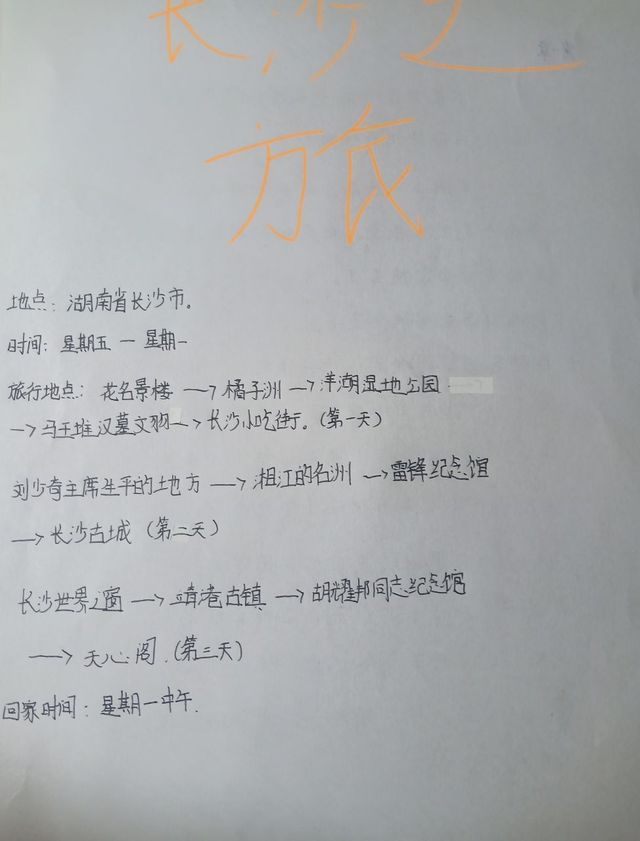 长沙之
旅
地点：湖南省长沙市。
时间：星期五一星期一
旅行地点：花名景楼→橘子洲→洋湖湿地公园
→马王堆汉墓文物→长沙小吃街。(第一天)
刘少奇主席生平的地方→湘江的名洲→雷锋纪念馆
→长沙古城(第二天)
长沙世界之窗→靖港古镇→胡耀邦同志纪念馆
→天心阁.(第三天)
回家时间：星期一中午.